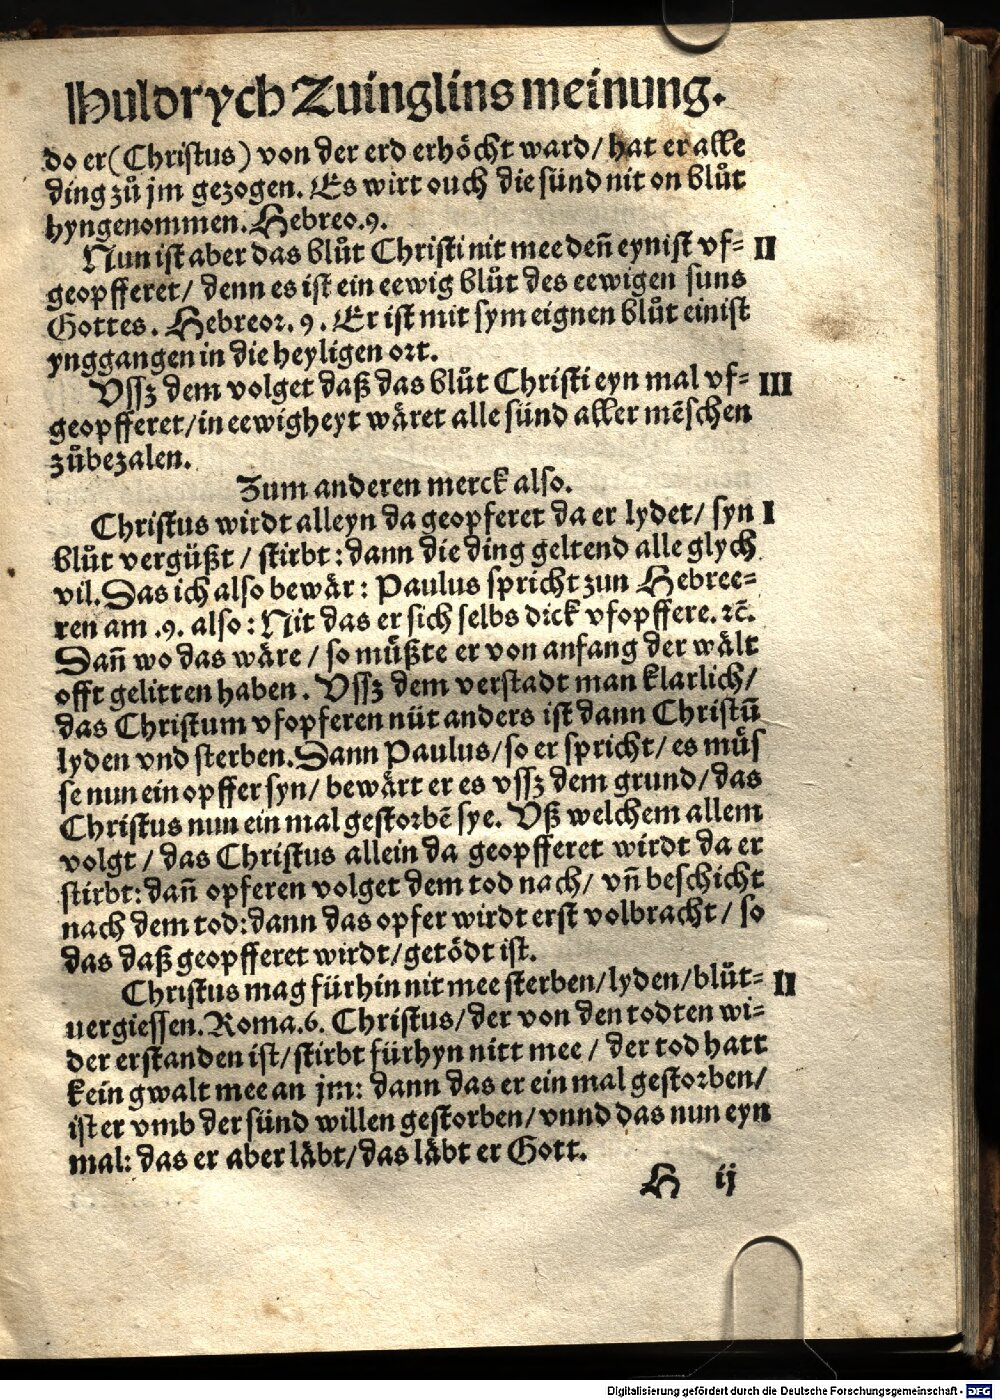 Huldrych Zuinglins meinung.
do er (Christus) von der erd erhöcht ward / hat er alle
ding zuͦ jm gezogen. Es wirt ouch die sünd nit on bluͦt
hyngenommen. Hebreo. 9.
Nun ist aber das bluͦt Christi nit mee deñ eynist vf= II
geopfferet / denn es ist ein eewig bluͦt des eewigen suns
Gottes. Hebreor. 9. Er ist mit sym eignen bluͦt einist
ynggangen in die heyligen ort.
Vssz dem volget daß das bluͦt Christi eyn mal vf= III
geopfferet / in eewigheyt wäret alle sünd aller mẽschen
zuͦbezalen.
Zum anderen merck also.
Christus wirdt alleyn da geopferet da er lydet / syn I
bluͦt vergüßt / stirbt: dann die ding geltend alle glych
vil. Das ich also bewär: Paulus spricht zun Hebree=
ren am .9. also: Nit das er sich selbs dick vfopffere. ꝛc̃.
Dañ wo das wäre / so müßte er von anfang der wält
offt gelitten haben. Vssz dem verstadt man klarlich /
das Christum vfopferen nüt anders ist dann Christũ
lyden vnd sterben. Dann Paulus / so er spricht / es müs
se nun ein opffer syn / bewärt er es vssz dem grund / das
Christus nun ein mal gestorbẽ sye. Vß welchem allem
volgt / das Christus allein da geopfferet wirdt da er
stirbt: dañ opferen volget dem tod nach / vñ beschicht
nach dem tod: dann das opfer wirdt erst volbracht / so
das daß geopfferet wirdt / getödt ist.
Christus mag fürhin nit mee sterben / lyden / bluͦt= II
uergiessen. Roma. 6. Christus / der von den todten wi=
der erstanden ist / stirbt fürhyn nitt mee / der tod hatt
kein gwalt mee an jm: dann das er ein mal gestorben /
ist er vmb der sünd willen gestorben / vnnd das nun eyn
mal: das er aber läbt / das läbt er Gott.
H ij
Digitalisierung gefördert durch die Deutsche Forschungsgemeinschaft - DFG